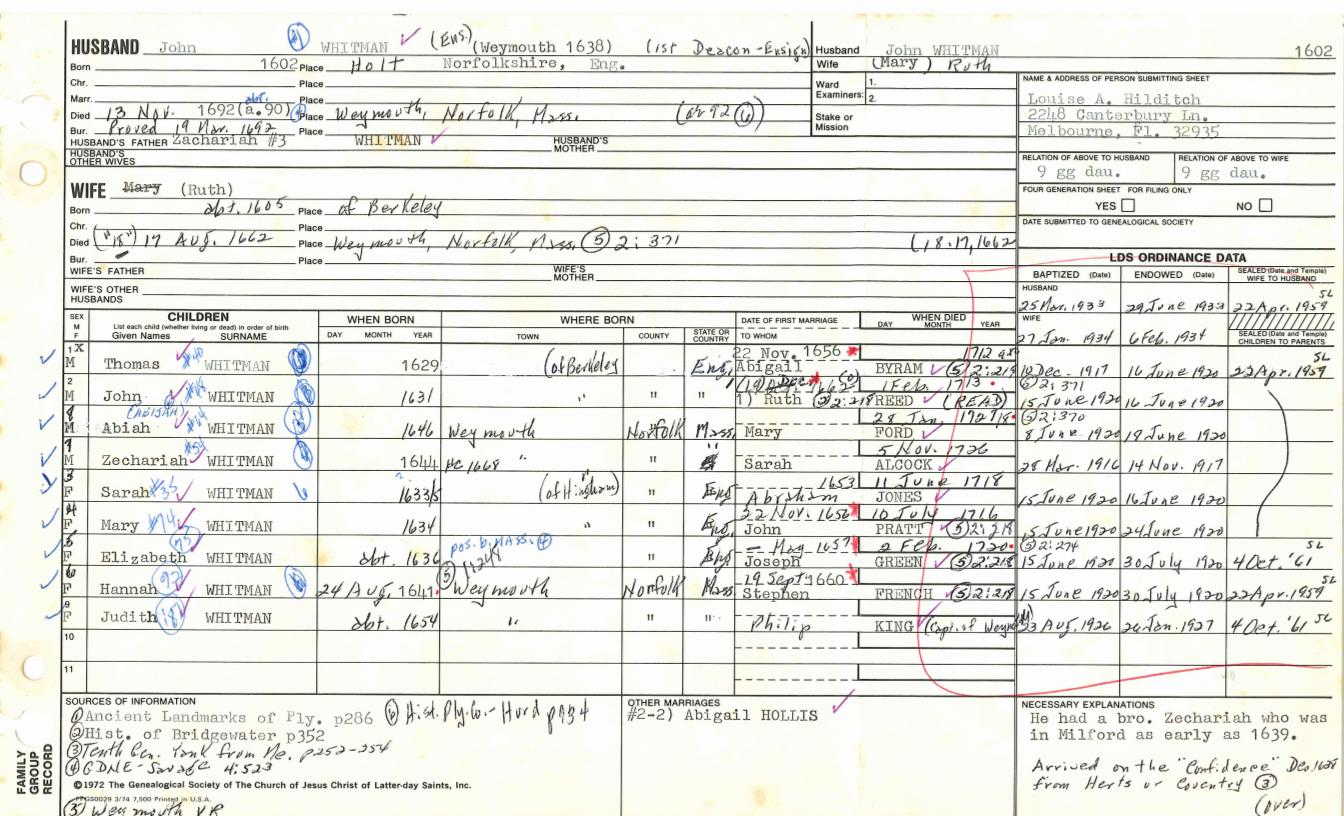 HUSBAND John WHITMAN (Ens.) (Weymouth 1638) (1st Deacon-Ensign)
Born 1602 Place Holt Norfolkshire, Eng.
Chr. Place
Marr. abt. Place
Died 13 Nov. 1692 (a.90) Place Weymouth, Norfolk, Mass. (or 92 ⑥)
Bur. Proved 19 Mar. 1692 Place
HUSBAND'S FATHER Zachariah #3 WHITMAN HUSBAND'S MOTHER
HUSBAND'S OTHER WIVES
WIFE Mary (Ruth)
Born abt. 1605 Place of Berkeley
Chr. Place
Died ("18") 17 Aug. 1662 Place Weymouth, Norfolk, Mass. ⑤ 2:371 (18.17,1662
Bur. Place
WIFE'S FATHER WIFE'S MOTHER
WIFE'S OTHER HUSBANDS
Husband John WHITMAN 1602
Wife (Mary) Ruth
Ward Examiners: 1. 2.
Stake or Mission
NAME & ADDRESS OF PERSON SUBMITTING SHEET
Louise A. Hilditch
2248 Canterbury Ln.
Melbourne, Fl. 32935
RELATION OF ABOVE TO HUSBAND RELATION OF ABOVE TO WIFE
9 gg dau. 9 gg dau.
FOUR GENERATION SHEET FOR FILING ONLY
YES NO
DATE SUBMITTED TO GENEALOGICAL SOCIETY
LDS ORDINANCE DATA
BAPTIZED (Date) ENDOWED (Date) SEALED (Date and Temple) WIFE TO HUSBAND
HUSBAND SL
25 Mar. 1933 29 June 1933 22 Apr. 1959
WIFE
27 Jan. 1934 6 Feb. 1934 SEALED (Date and Temple) CHILDREN TO PARENTS
SEX M F CHILDREN WHEN BORN WHERE BORN DATE OF FIRST MARRIAGE WHEN DIED
List each child (whether living or dead) in order of birth
Given Names SURNAME DAY MONTH YEAR TOWN COUNTY STATE OR COUNTRY TO WHOM DAY MONTH YEAR
1 X 22 Nov. 1656 1712 SL
M Thomas WHITMAN 1629 (of Berkeley Eng. Abigail BYRAM ⑤ 2:219 Dec. 1917 16 June 1920 22 Apr. 1959
2 Dec 1662 1 Feb. 1713 ⑤ 2:371
M John WHITMAN 1631 " " " 1) Ruth REED (READ) 15 June 1920 16 June 1920
8 (ABIJAH) 28 Jan. 1727/8 ⑤ 2:370
M Abiah WHITMAN 1646 Weymouth Norfolk Mass. Mary FORD 8 June 1920 19 June 1920
5 Nov. 1726
M Zechariah WHITMAN 1644 HC 1668 " " " Sarah ALCOCK 28 Mar. 1916 14 Nov. 1917
3 1653 11 June 1718
F Sarah #35 WHITMAN 1633/5 (of Hingham) " Eng Abraham JONES 15 June 1920 16 June 1920
4 22 Nov. 1656 10 July 1716
F Mary #74 WHITMAN 1634 " " Eng John PRATT ⑤ 2:218 15 June 1920 24 June 1920
5 75 pos. b. MASS. ④ – May 1657 2 Feb. 1720 ⑤ 2:274 SL
F Elizabeth WHITMAN abt. 1636 " Eng Joseph GREEN ⑤ 2:218 15 June 1920 30 July 1920 4 Oct. '61
6 92 19 Sept 1660
F Hannah WHITMAN 24 Aug. 1641 Weymouth Norfolk Mass Stephen FRENCH ⑤ 2:218 15 June 1920 30 July 1920 22 Apr. 1959
9 SL
F Judith WHITMAN abt. 1654 " " " Philip KING (Capt. of Weym 23 Aug. 1926 26 Jan. 1927 4 Oct. '61
10
11
SOURCES OF INFORMATION
① Ancient Landmarks of Ply. p286 ⑥ Hist. Ply. Co. - Hurd p934
② Hist. of Bridgewater p352
③ Tenth Gen. Yank from Me. p252-254
④ GDNE - Savage 4:523
©1972 The Genealogical Society of The Church of Jesus Christ of Latter-day Saints, Inc.
PFGS0029 3/74 7,500 Printed in U.S.A.
⑤ Weymouth VR
FAMILY GROUP RECORD
OTHER MARRIAGES
#2-2) Abigail HOLLIS
NECESSARY EXPLANATIONS
He had a bro. Zechariah who was
in Milford as early as 1639.
Arrived on the "Confidence" Dec. 1638
from Herts or Coventry ③
(over)